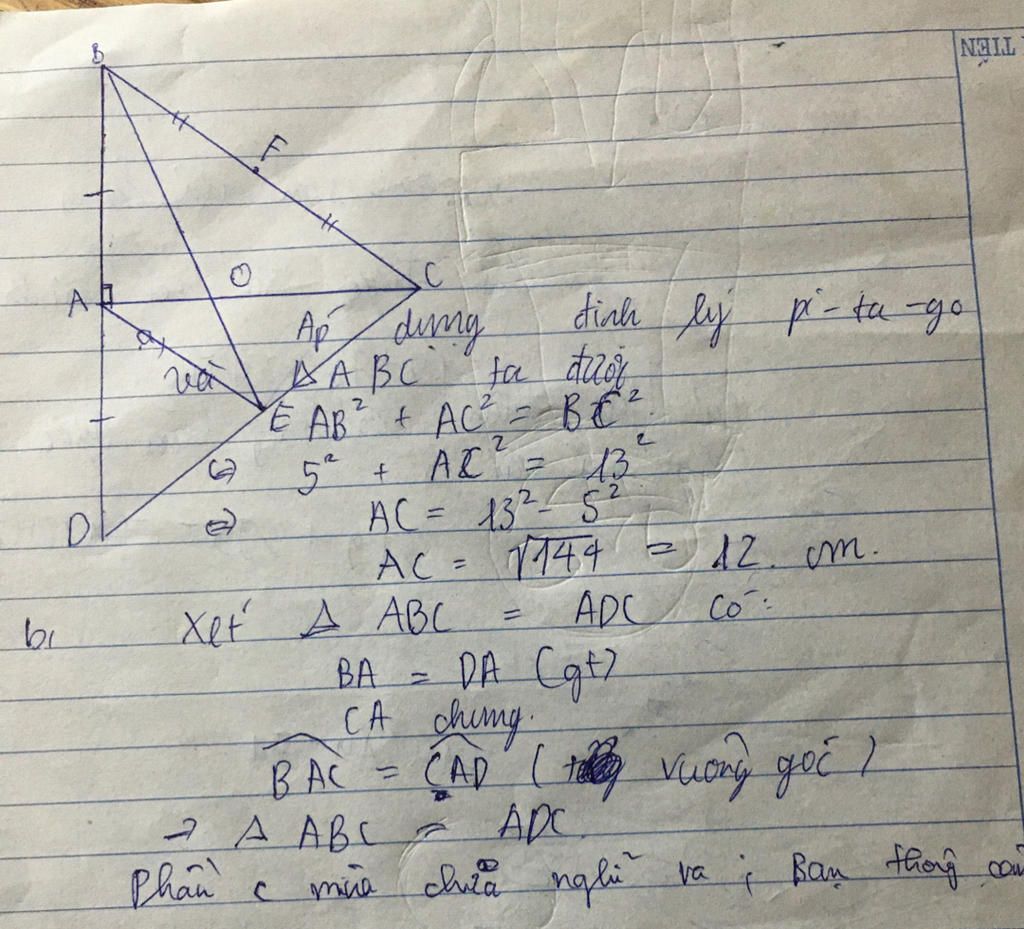 TIẾN
B
F
A
O
C
Áp dụng định lý pi-ta-go
a,
và Δ ABC ta được
E AB² + AC² = BC²
⇔ 5² + AC² = 13²
D ⇒ AC = 13² - 5²
AC = √144 = 12. cm.
b, Xét Δ ABC = ADC có:
BA = DA (gt)
CA chung.
BAC = CAD ( vuông góc )
→ Δ ABC = ADC
Phần c mình chưa nghĩ ra ; Bạn thông